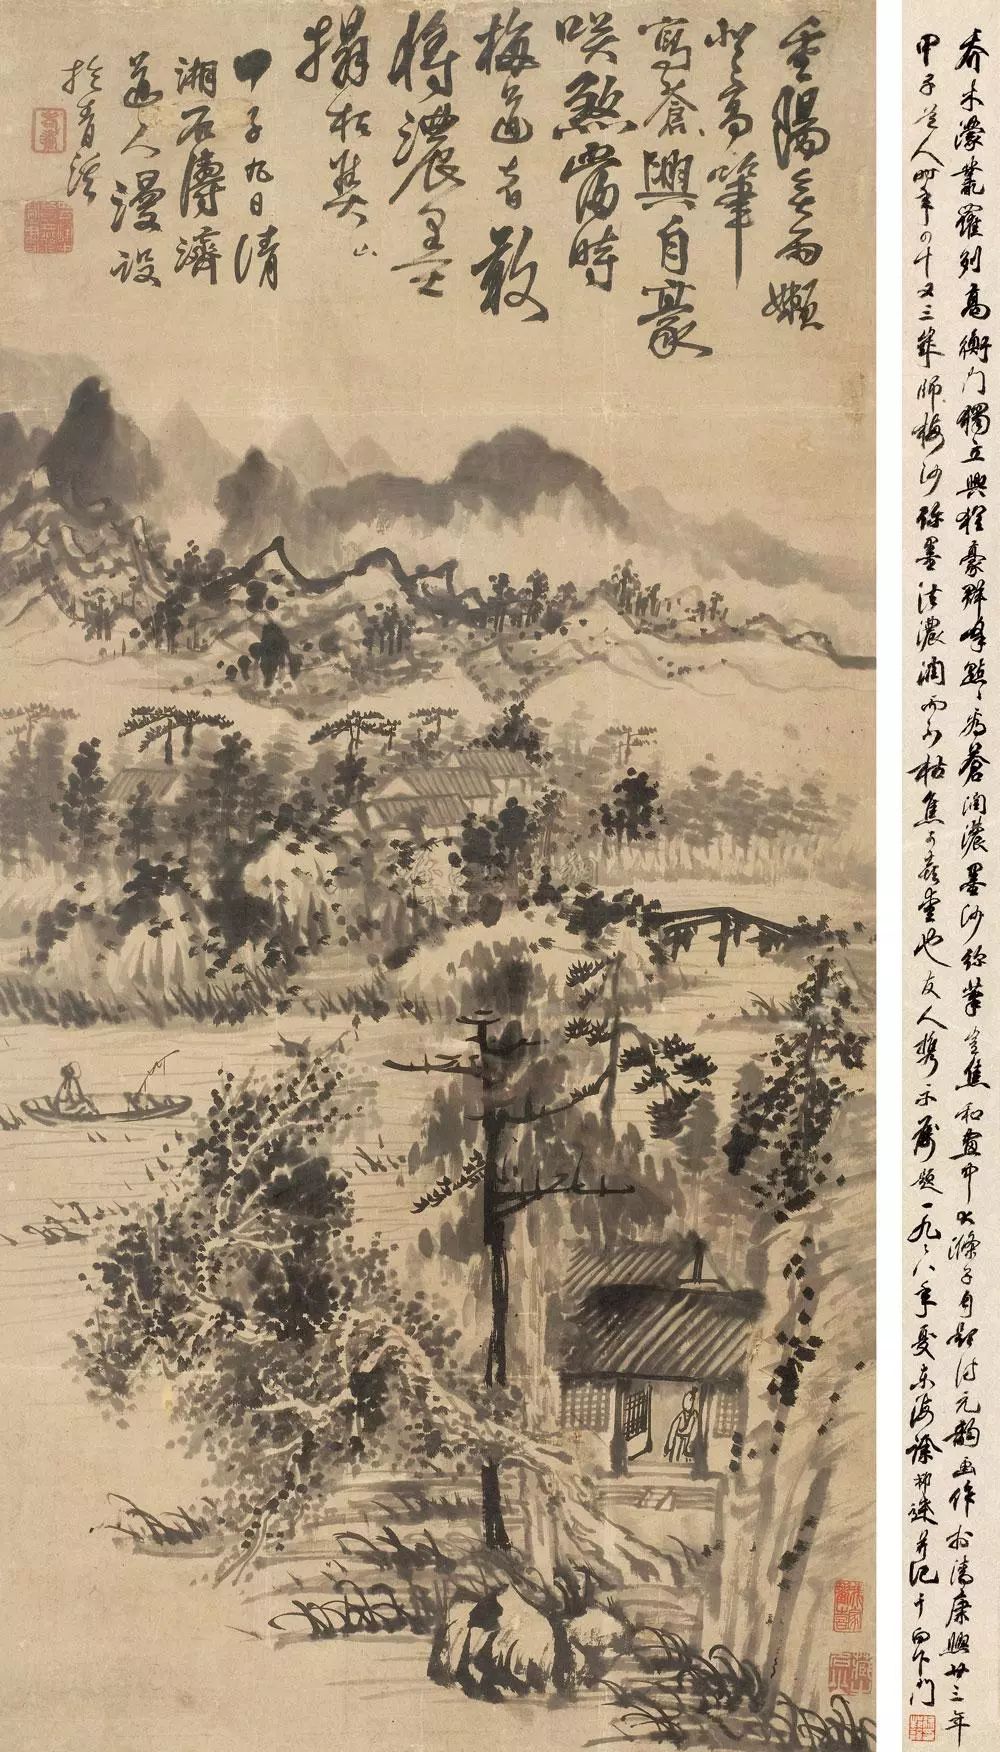 重陽无雨嬾
登高筆
寫蒼蒼興自豪
咲煞當時
梅道者敢
將濃墨
搨枯焦
甲子九日清
湘石濤濟
道人漫設
於青溪
喬木濛叢羅列高衡門獨立興豪群峰點點為蒼潤濃墨沙弥筆豈焦和畫中大滌子自題詩元韵畫作於清康熙廿三年
甲子道人時年四十又三歲師梅沙弥墨法濃潤而不枯焦可喜也友人携示屬題一九八年夏東海徐邦達并記于白下